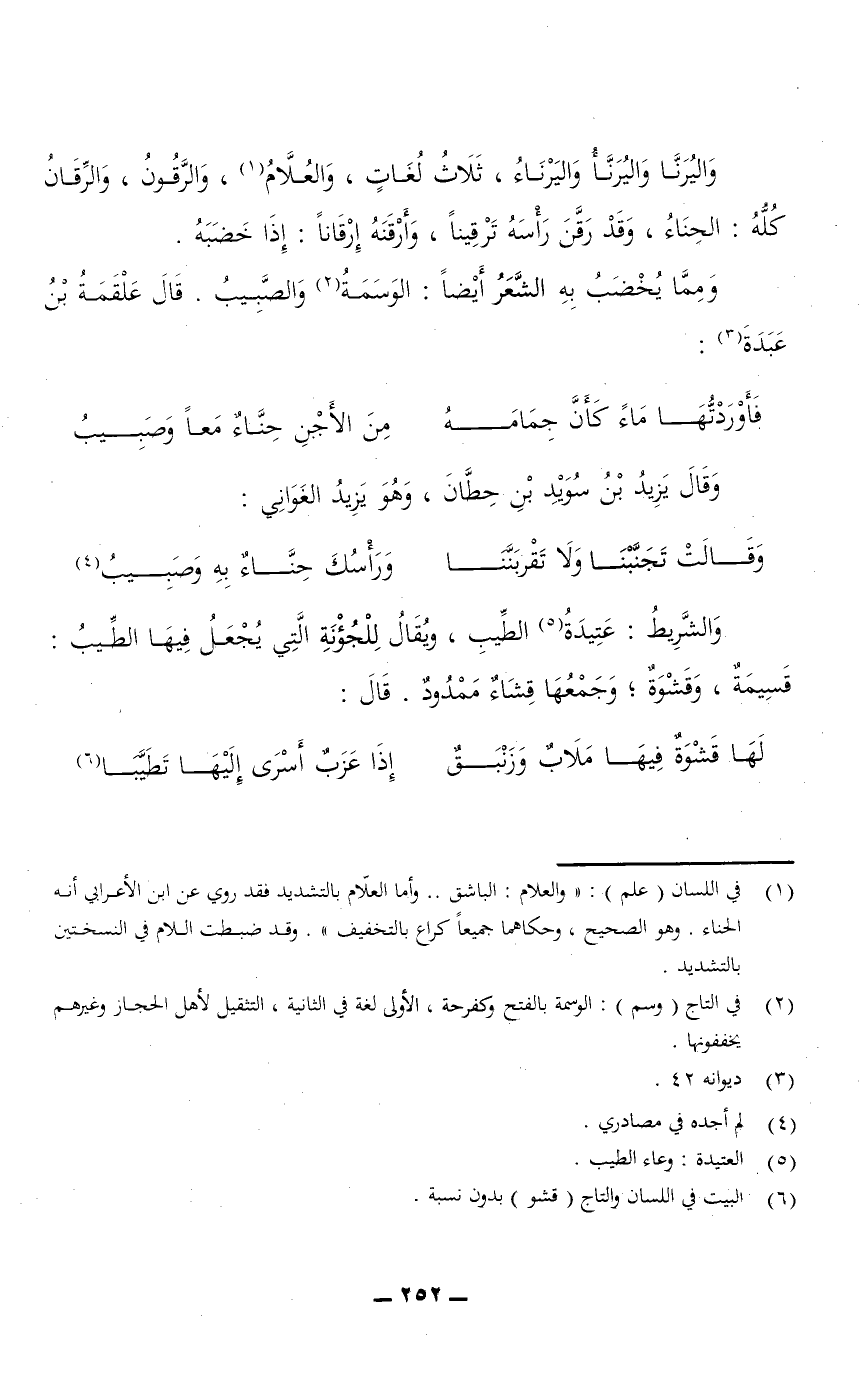 وَاليُرَنَّا وَاليُرَنَّأُ وَاليَرْنَاءُ ، ثَلَاثُ لُغَاتٍ ، وَالعُلَّامُ(١) ، وَالرَّقُونُ ، وَالرِّقَانُ
كُلُّهُ : الحِنَاءُ ، وَقَدْ رَقَّنَ رَأْسَهُ تَرْقِيناً ، وَأَرْقَنَهُ إِرْقَاناً : إِذَا خَضَبَهُ .
وَمِمَّا يُخْضَبُ بِهِ الشَّعَرُ أَيْضاً : الوَسَمَةُ(٢) وَالصَّبِيبُ . قَالَ عَلْقَمَةُ بْنُ
عَبَدَةَ(٣) :
فَأَوْرَدْتُّهَا مَاءً كَأَنَّ جِمَامَهُ مِنَ الأَجْنِ حِنَّاءٌ مَعاً وَصَبِيبُ
وَقَالَ يَزِيدُ بْنُ سُوَيْدِ بْنِ حِطَّانَ ، وَهُوَ يَزِيدُ الغَوَانِي :
وَقَالَتْ تَجَنَّبْنَا وَلَا تَقْرَبَنَّنَا وَرَأْسُكَ حِنَّاءٌ بِهِ وَصَبِيبُ(٤)
وَالشَّرِيطُ : عَتِيدَةُ(٥) الطِّيبِ ، ويُقَالُ لِلْجُؤْنَةِ الَّتِي يُجْعَلُ فِيهَا الطِّيبُ :
قَسِيمَةٌ ، وَقَشْوَةٌ ؛ وَجَمْعُهَا قِشَاءٌ مَمْدُودٌ . قَالَ :
لَهَا قَشْوَةٌ فِيهَا مَلَابٌ وَزَنْبَقٌ إِذَا عَزَبٌ أَسْرَى إِلَيْهَا تَطَيَّبَا(٦)
(١) في اللسان ( علم ) : « والعلام : الباشق .. وأما العلّام بالتشديد فقد روي عن ابن الأعرابي أنه
الحناء . وهو الصحيح ، وحكاهما جميعاً كراع بالتخفيف » . وقد ضبطت اللام في النسختين
بالتشديد .
(٢) في التاج ( وسم ) : الوسمة بالفتح وكفرحة ، الأولى لغة في الثانية ، التثقيل لأهل الحجاز وغيرهم
يخففونها .
(٣) ديوانه ٤٢ .
(٤) لم أجده في مصادري .
(٥) العتيدة : وعاء الطيب .
(٦) البيت في اللسان والتاج ( قشو ) بدون نسبة .
— ٢٥٢ —